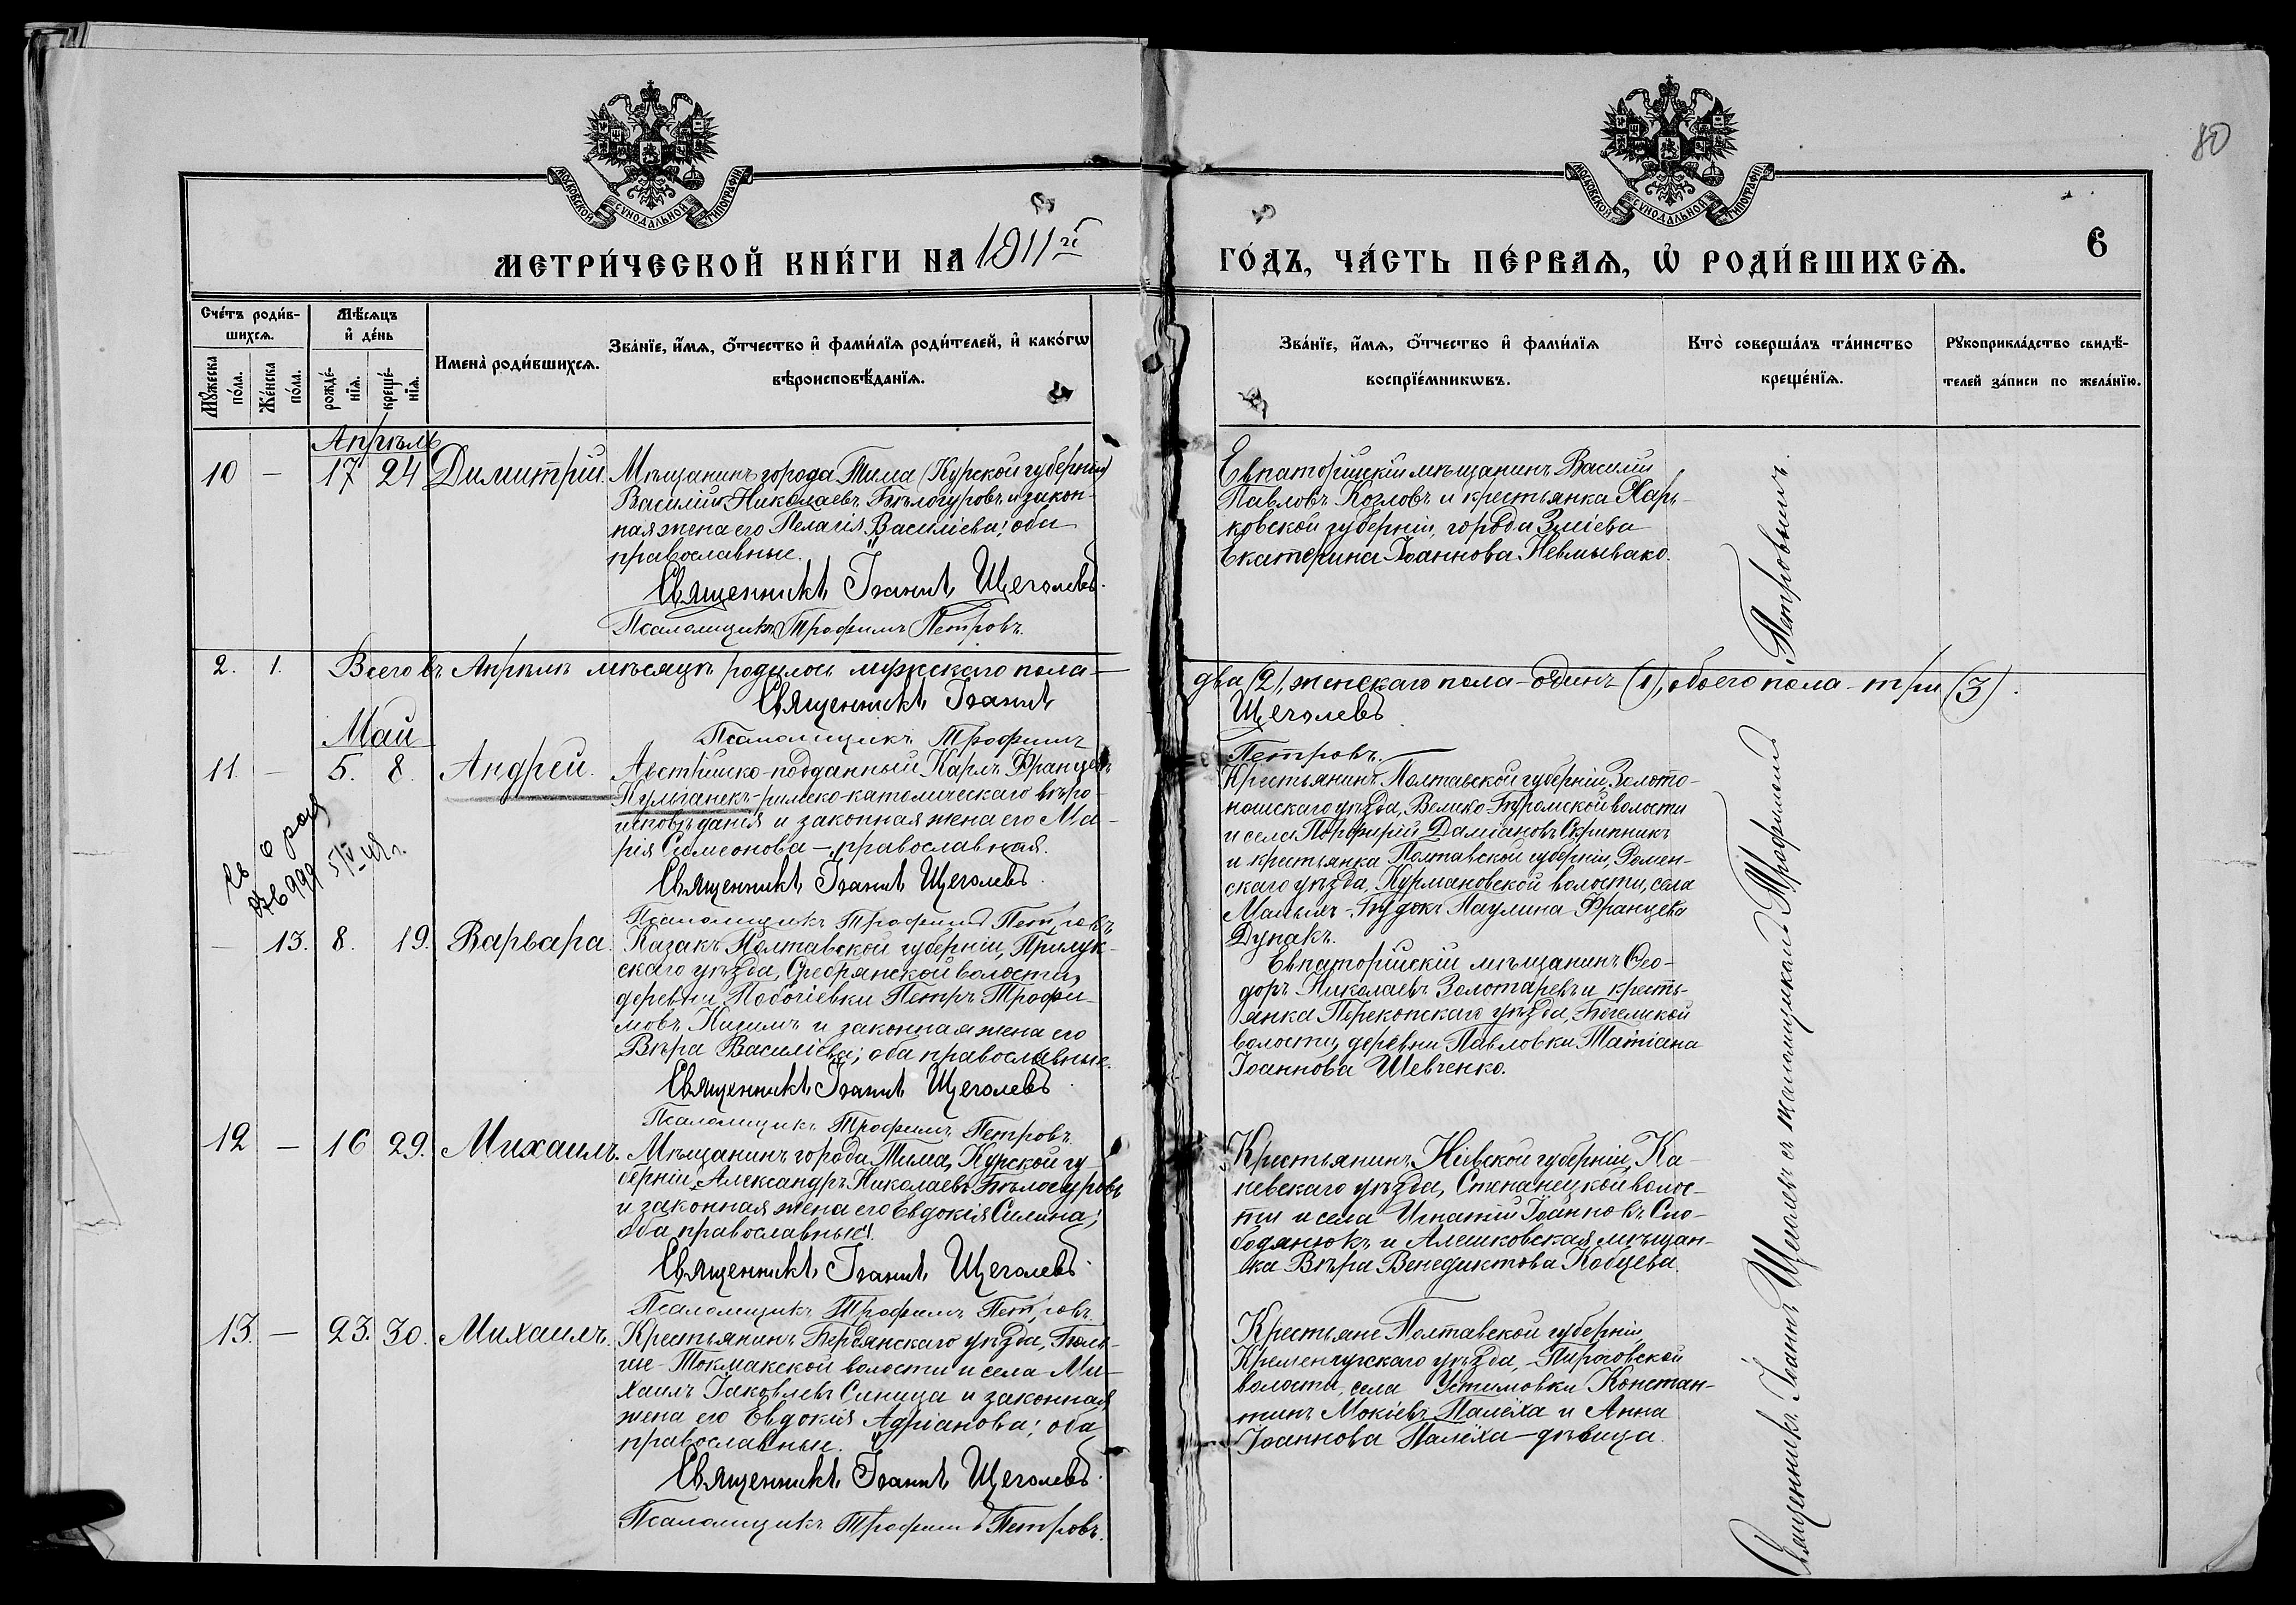 80
МОСКОВСКОЙ СѴНОДАЛЬНОЙ ТИПОГРАФІИ
МОСКОВСКОЙ СѴНОДАЛЬНОЙ ТИПОГРАФІИ
МЕТРИ́ЧЕСКОЙ КНИ́ГИ НА 1911й
ГО́ДЪ, ЧА́СТЬ ПЕ́РВАѦ, Ѡ҆ РОДИ́ВШИХСѦ.
6
Сче́тъ роди́в-
шихсѧ.
Мꙋ́жеска по́ла.
Же́нска по́ла.
Мѣ́сѧцъ
и҆ де́нь
рожде́-
нїѧ.
креще́-
нїѧ.
Имена̀ роди́вшихсѧ.
Зва́нїе, и҆́мѧ, ѻ҆́тчество и҆ фами́лїѧ роди́телей, и҆ како́гѡ
вѣроисповѣ́данїѧ.
Зва́нїе, и҆́мѧ, ѻ҆́тчество и҆ фами́лїѧ
воспрїе́мникѡвъ.
Кто̀ соверша́лъ та́инство
креще́нїѧ.
Рꙋкоприкла́дство свидѣ́-
телей за́писи по жела́нїю.
Апрѣль
10 — 17 24 Димитрій.
Мѣщанинъ города Тима (Курской губерніи)
Василій Николаевъ Бѣлогуровъ и закон-
ная жена его Пелагія Василіева; оба
православные.
Священникъ Іоаннъ Щеголевъ.
Псаломщикъ Трофимъ Петровъ.
Евпаторійскій мѣщанинъ Василій
Павловъ Козловъ и крестьянка Харь-
ковской губерніи, города Зміева
Екатерина Іоаннова Невмывако.
2. 1. Всего въ Апрѣлѣ мѣсяцѣ родилось мужескаго пола —
два (2), женскаго пола — одинъ (1), обоего пола — три (3).
Священникъ Іоаннъ
Щеголевъ
Псаломщикъ Трофимъ
Петровъ.
Май
11. — 5. 8. Андрей.
Австрійско-подданный Карлъ Францевъ
Кульганекъ — римско-католическаго вѣро-
исповѣданія и законная жена его Ма-
рія Симеонова — православная.
Священникъ Іоаннъ Щеголевъ.
Псаломщикъ Трофимъ Петровъ
Крестьянинъ Полтавской губерніи, Золото-
ношскаго уѣзда, Велико-Буромской волости
и села Порфирій Даміановъ Скрипникъ
и крестьянка Полтавской губерніи, Ромен-
скаго уѣзда, Курмановской волости, села
Малыхъ-Будокъ Паулина Францева
Дунакъ.
св о рожд
5/V 49 г.
— 13. 8. 19. Варвара.
Казакъ Полтавской губерніи, Прилук-
скаго уѣзда, Сребрянской волости,
деревни Побочіевки Петръ Трофи-
мовъ Кизимъ и законная жена его
Вѣра Василіева; оба православные.
Священникъ Іоаннъ Щеголевъ.
Псаломщикъ Трофимъ Петровъ.
Евпаторійскій мѣщанинъ Ѳео-
доръ Николаевъ Золотаревъ и кресть-
янка Перекопскаго уѣзда, Богемской
волости, деревни Павловки Татіана
Іоаннова Шевченко.
12 — 16 29. Михаилъ.
Мѣщанинъ города Тима, Курской гу-
берніи, Александръ Николаевъ Бѣлогуровъ
и законная жена его Евдокія Силина;
оба православные.
Священникъ Іоаннъ Щеголевъ.
Псаломщикъ Трофимъ Петровъ.
Крестьянинъ Кіевской губерніи, Ка-
невскаго уѣзда, Степанецкой волос-
ти и села Игнатій Іоанновъ Сло-
бодянюкъ и Алешковская мѣщан-
ка Вѣра Венедиктова Кобцева.
13. — 23. 30. Михаилъ.
Крестьянинъ Бердянскаго уѣзда, Боль-
ше-Токмакской волости и села Ми-
хаилъ Іаковлевъ Синица и законная
жена его Евдокія Адріанова; оба
православные.
Священникъ Іоаннъ Щеголевъ.
Псаломщикъ Трофимъ Петровъ.
Крестьяне Полтавской губерніи,
Кременчугскаго уѣзда, Пироговской
волости, села Устимовки Констан-
тинъ Мокіевъ Палёха и Анна
Іоаннова Палёха — дѣвица.
Священникъ Іоаннъ Щеголевъ съ псаломщикомъ Трофимомъ Петровымъ.